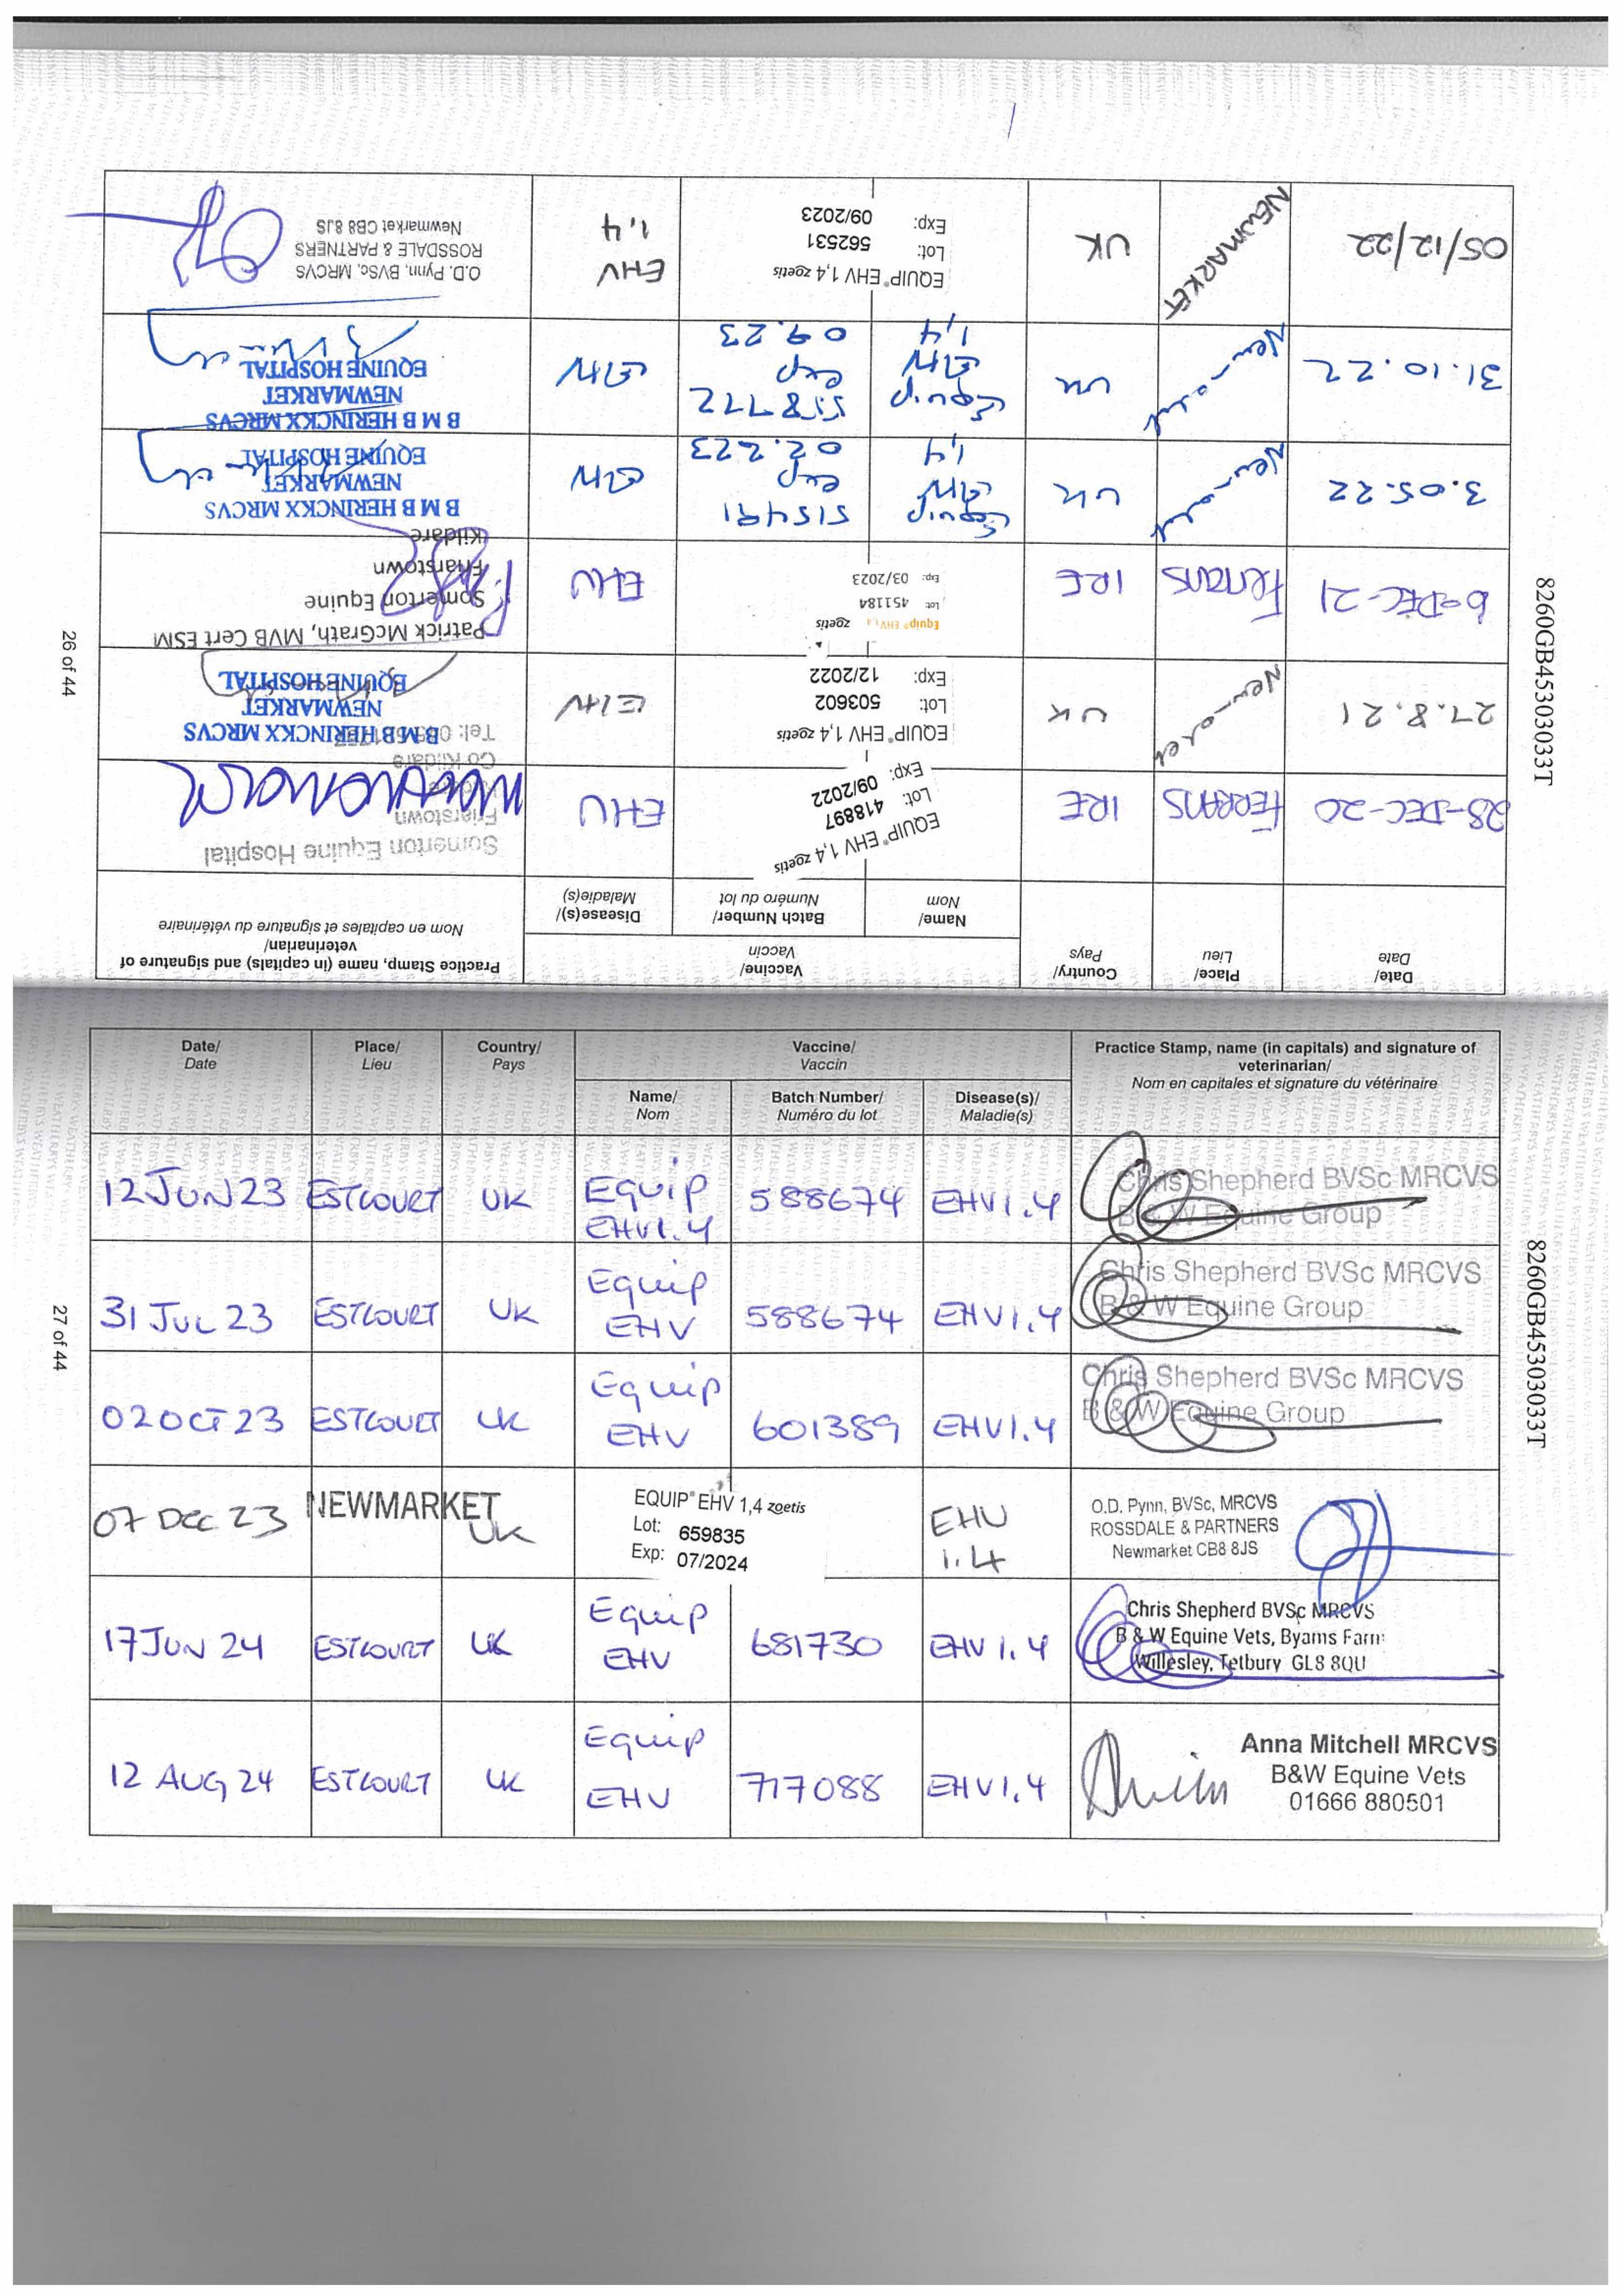 Date/
Date
Place/
Lieu
Country/
Pays
Vaccine/
Vaccin
Practice Stamp, name (in capitals) and signature of
veterinarian/
Nom en capitales et signature du vétérinaire
Name/
Nom
Batch Number/
Numéro du lot
Disease(s)/
Maladie(s)
28-DEC-20
FERRANS
IRE
EQUIP® EHV 1,4 zoetis
Lot: 418897
Exp: 09/2022
EHV
Somerton Equine Hospital
Friarstown
Kildare
Co Kildare
27.8.21
Newmarket
UK
EQUIP® EHV 1,4 zoetis
Lot: 503602
Exp: 12/2022
EHV
B M B HERINCKX MRCVS
NEWMARKET
EQUINE HOSPITAL
6-DEC-21
FERRANS
IRE
Equip® EHV 1,4 zoetis
Lot: 451184
Exp: 03/2023
EHV
Patrick McGrath, MVB Cert ESM
Somerton Equine
Friarstown
Kildare
3.05.22
Newmarket
UK
Equip
EHV
1,4
515491
exp
EHV
B M B HERINCKX MRCVS
NEWMARKET
EQUINE HOSPITAL
31.10.22
Newmarket
UK
Equip
EHV
1,4
558772
exp
09.23
EHV
B M B HERINCKX MRCVS
NEWMARKET
EQUINE HOSPITAL
05/12/22
NEWMARKET
UK
EQUIP® EHV 1,4 zoetis
Lot: 562531
Exp: 09/2023
EHV
1,4
O.D. Pynn, BVSc, MRCVS
ROSSDALE & PARTNERS
Newmarket CB8 8JS
26 of 44
8260GB45303033T
Date/
Date
Place/
Lieu
Country/
Pays
Vaccine/
Vaccin
Practice Stamp, name (in capitals) and signature of
veterinarian/
Nom en capitales et signature du vétérinaire
Name/
Nom
Batch Number/
Numéro du lot
Disease(s)/
Maladie(s)
12 JUN 23
ESTCOURT
UK
Equip
EHV1.4
588674
EHV1.4
Chris Shepherd BVSc MRCVS
B & W Equine Group
31 JUL 23
ESTCOURT
UK
Equip
EHV
588674
EHV1.4
Chris Shepherd BVSc MRCVS
B & W Equine Group
02 OCT 23
ESTCOURT
UK
Equip
EHV
601389
EHV1.4
Chris Shepherd BVSc MRCVS
B & W Equine Group
07 DEC 23
NEWMARKET
UK
EQUIP® EHV 1,4 zoetis
Lot: 659835
Exp: 07/2024
EHV
1.4
O.D. Pynn, BVSc, MRCVS
ROSSDALE & PARTNERS
Newmarket CB8 8JS
17 JUN 24
ESTCOURT
UK
Equip
EHV
681730
EHV 1.4
Chris Shepherd BVSc MRCVS
B & W Equine Vets, Byams Farm
Willesley, Tetbury GL8 8QU
12 AUG 24
ESTCOURT
UK
Equip
EHV
717088
EHV1.4
Anna Mitchell MRCVS
B&W Equine Vets
01666 880501
27 of 44
8260GB45303033T